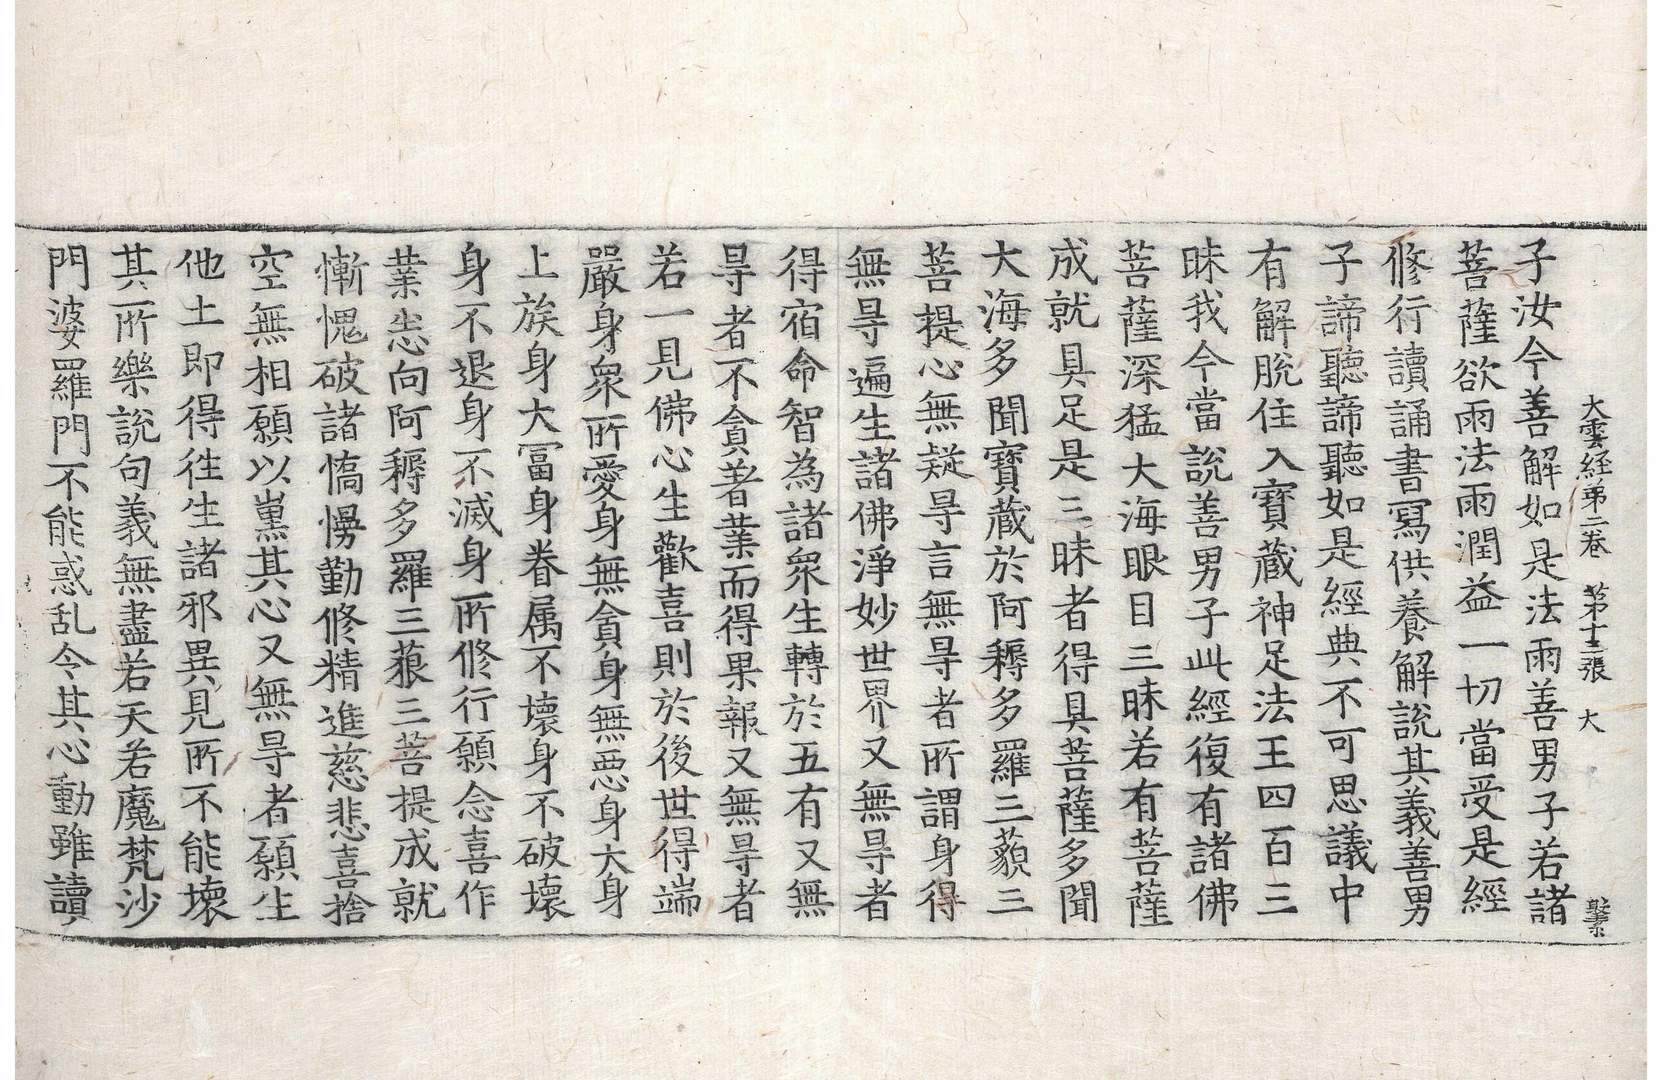 大雲経第二卷 第十三張 大
子汝今善解如是法雨善男子若諸
菩薩欲雨法雨潤益一切當受是經
修行讀誦書寫供養解說其義善男
子諦聽諦聽如是經典不可思議中
有解脫住入寶蔵神足法王四百三
昧我今當說善男子此經復有諸佛
菩薩深猛大海眼目三昧若有菩薩
成就具足是三昧者得具菩薩多聞
大海多聞寶蔵於阿耨多羅三藐三
菩提心無疑㝵言無㝵者所謂身得
無㝵遍生諸佛淨妙世界又無㝵者
得宿命智為諸衆生轉於五有又無
㝵者不貪著業而得果報又無㝵者
若一見佛心生歡喜則於後世得端
嚴身衆所愛身無貪身無惡身大身
上族身大冨身眷属不壞身不破壞
身不退身不滅身所修行願念喜作
業悉向阿耨多羅三藐三菩提成就
慚愧破諸憍慢勤修精進慈悲喜捨
空無相願以熏其心又無㝵者願生
他土即得往生諸邪異見所不能壞
其所樂說句義無盡若天若魔梵沙
門婆羅門不能惑乱令其心動雖讀